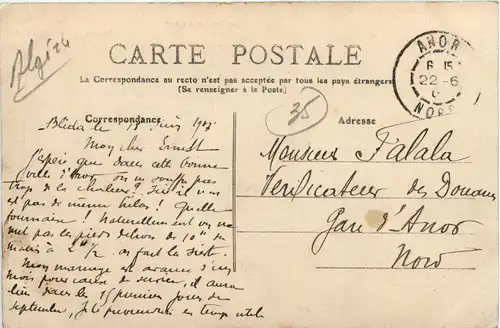 Algérie
CARTE POSTALE
La Correspondance au recto n'est pas acceptée par tous les pays étrangers
(Se renseigner à la Poste)
ANOR
6 15
22-6
NORD
35
Correspondance
Adresse
Blida le 18 Juin 1907
Mon cher Ernest
J'espère que dans cette bonne
ville d'Anor on ne souffre pas
trop de la chaleur? Ici il n'en
est pas de même hélas! Quelle
fournaise! Naturellement on ne
met pas les pieds dehors de 10h du
matin à 2h 1/2 on fait la sieste.
Mon mariage est avancé d'un
mois pour cause de service, il aura
lieu dans les 15 premiers jours de
septembre, je te préviendrai en temps utile
Monsieur Falala
Vérificateur des Douanes
Gare d'Anor
Nord